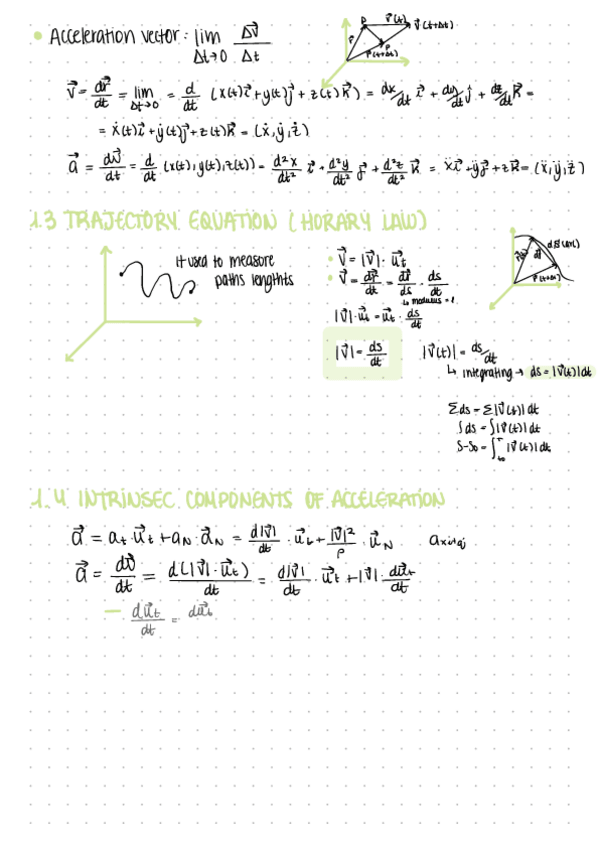 • Acceleration vector: lim Δt→0 Δv⃗/Δt
P v⃗(t) v⃗(t+Δt)
r⃗ P r⃗(t+Δt)
v⃗ = dr⃗/dt = lim Δt→0 = d/dt (x(t)i⃗+y(t)j⃗+z(t)k⃗) = dx/dt i⃗ + dy/dt j⃗ + dz/dt k⃗ =
= ẋ(t)i⃗+ẏ(t)j⃗+ż(t)k⃗ = (ẋ,ẏ,ż)
a⃗ = dv⃗/dt = d/dt (x(t),y(t),z(t)) = d²x/dt² i⃗ + d²y/dt² j⃗ + d²z/dt² k⃗ = ẍi⃗+ÿj⃗+z̈k⃗ = (ẍ,ÿ,z̈)
1.3 TRAJECTORY EQUATION (HORARY LAW)
it used to measure
paths lenghts
• v⃗ = |v⃗| · u⃗t
• v⃗ = dr⃗/dt = dr⃗/ds · ds/dt
↳ modulus = 1
|v⃗|·u⃗t = u⃗t · ds/dt
|v⃗| = ds/dt
|v⃗(t)| = ds/dt
↳ integrating → ds = |v⃗(t)| dt
Σds = Σ|v⃗(t)| dt
∫ds = ∫|v⃗(t)| dt
S-S₀ = ∫ |v⃗(t)| dt
1.4 INTRINSEC COMPONENTS OF ACCELERATION
a⃗ = at·u⃗t + aN·a⃗N = d|v⃗|/dt · u⃗t + |v⃗|²/ρ · u⃗N
a⃗ = dv⃗/dt = d(|v⃗|·u⃗t)/dt = d|v⃗|/dt · u⃗t + |v⃗| · du⃗t/dt
— du⃗t/dt = du⃗t